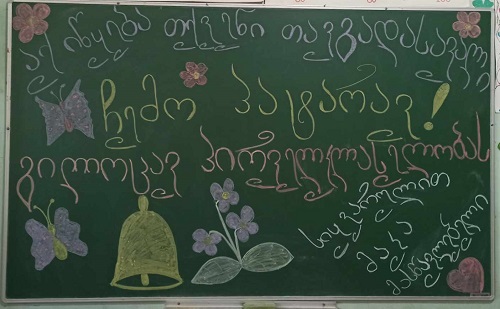 აქ იწყება თქვენი თავგადასავალი
ჩემო პატარავ!
გილოცავ პირველკლასელობას
სიყვარულით
მაკა
მასწავლებელი